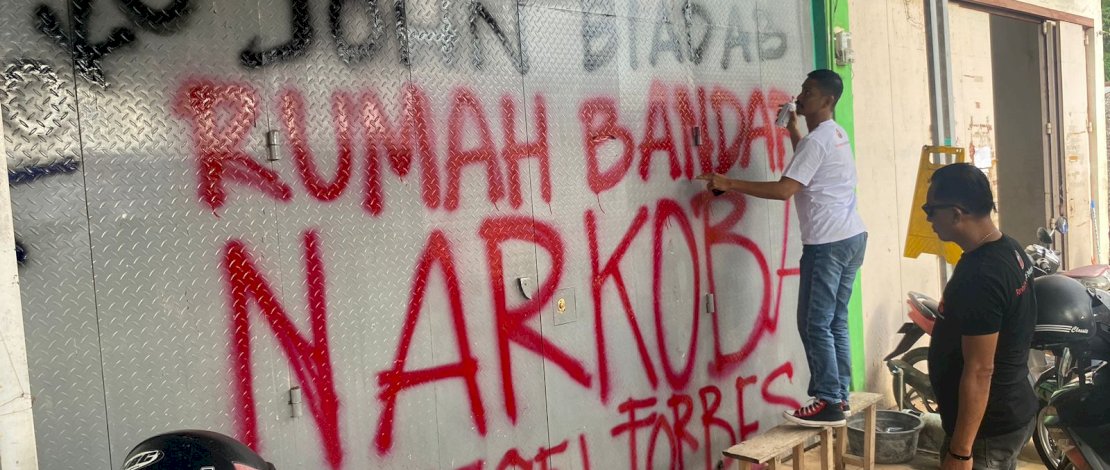 JOHN BIADAB
RUMAH BANDAR
NARKOBA
FORBES
Classic